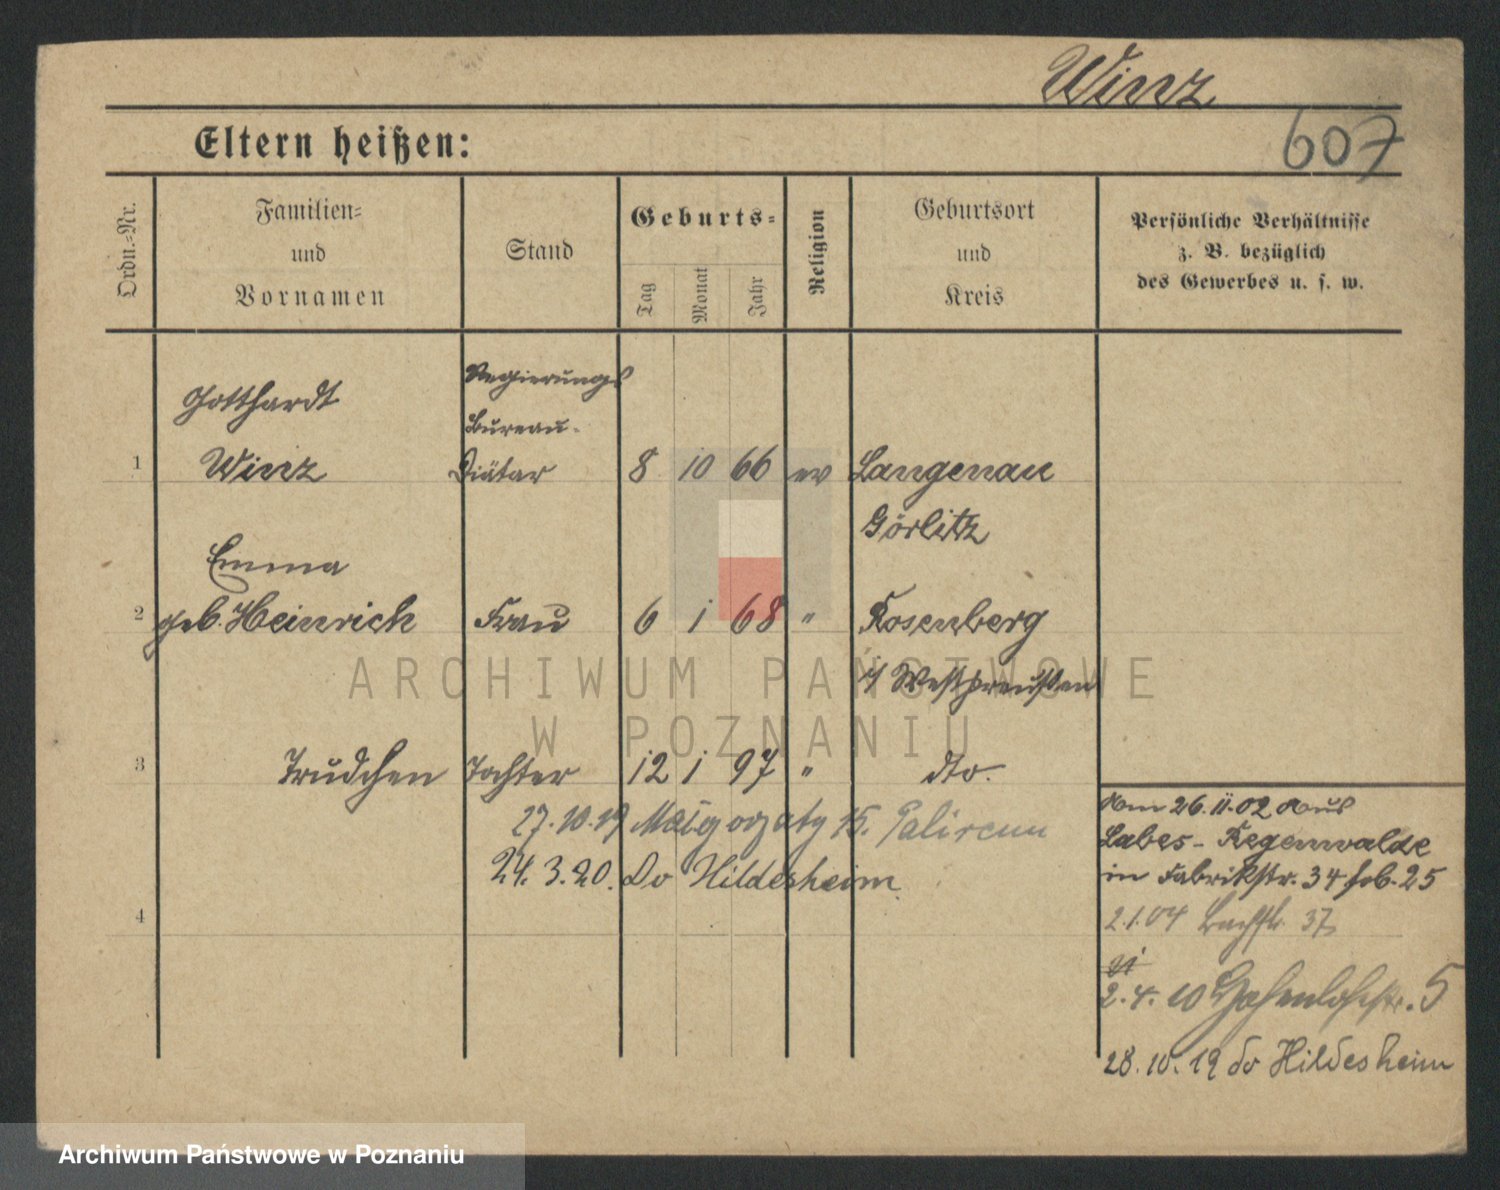 Winz
607
Eltern heißen:
Ordn.-Nr.
Familien-
und
Vornamen
Stand
Geburts-
Tag
Monat
Jahr
Religion
Geburtsort
und
Kreis
Persönliche Verhältnisse
z. B. bezüglich
des Gewerbes u. s. w.
Gotthardt
Regierungs
Bureau-
1 Winz Diätar 8 10 66 ev Langenau
Görlitz
Emma
2 geb. Heinrich Frau 6 1 68 " Rosenberg
i/ Westpreußen
ARCHIWUM PAŃSTWOWE
W POZNANIU
3 Trudchen Tochter 12 1 97 " dto.
27.10.19 15.
24.3.20. do Hildesheim
4
Am 26.11.02 aus
Labes-Regenwalde
in Fabrikstr. 34 25
2.1.04 Bachstr. 37
2.4.10 Hohenlohestr. 5
28.10.19 do Hildesheim
Archiwum Państwowe w Poznaniu